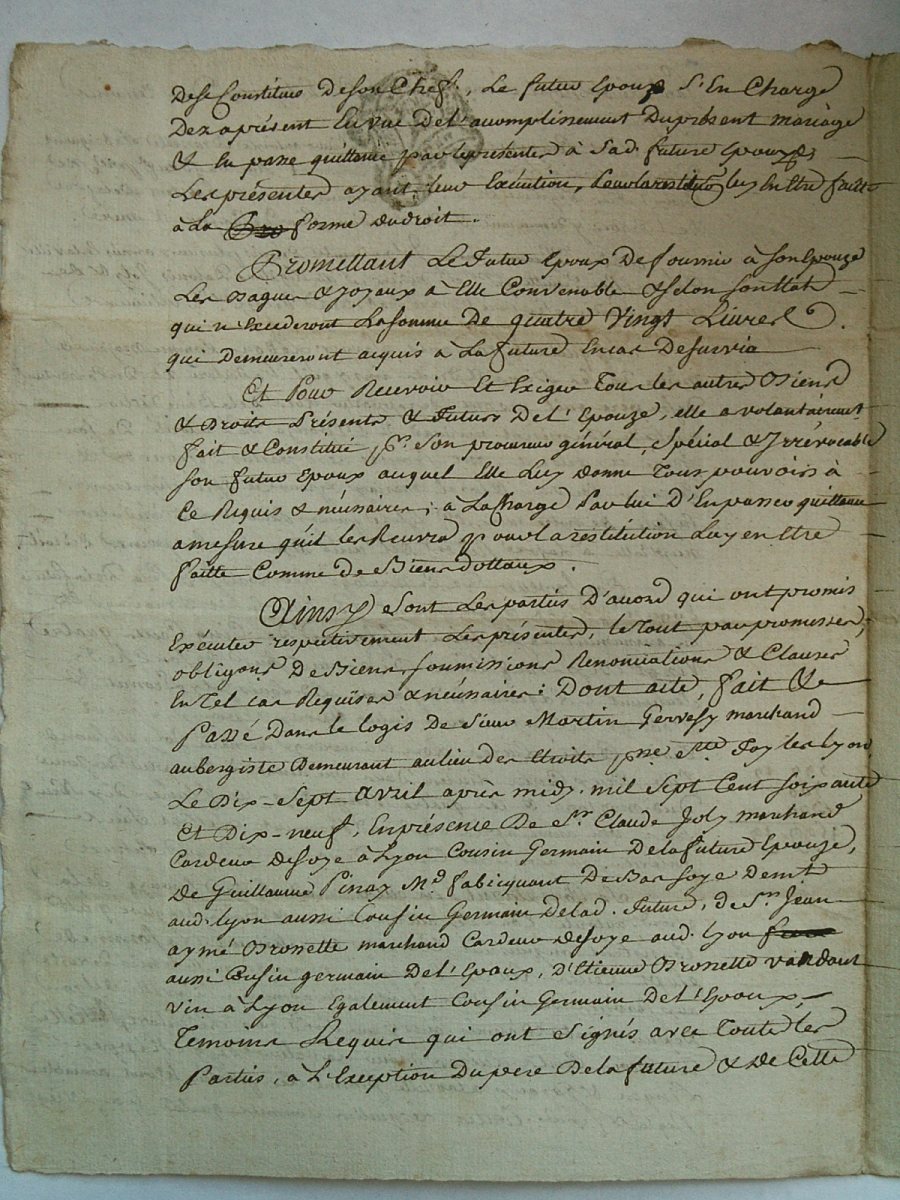 dese Constituer deson Chef., Le futur Epoux s'En Charge
Dez aprésent Envue del'acomplissement Duprésent mariage
& En passe quittance par lesprésentes à Sad. future Epouze
Les présentes ayant leur Exécution, pour la restitution luy En Etre faitte
à La forme dudroit.
Promettant Le futur Epoux De fournir à Son Epouze
Les Bagues & Joyaux à Elle Convenable & selon son Etat
qui n'Excederont La somme De quatre Vingt Livres
qui Demeureront acquis à La future En cas Desurvie
Et Pour Recevoir Et Exiger Tous les autres Biens
& Droits Présents & futurs De l'Epouze, elle a volontairemt
fait & Constitué pr. Son procureur général, Spécial & Irrévocable
son futur Epoux auquel Elle Luy donne Tous pouvoirs à
Ce Requis & nécessaires, à La Charge Par lui D'En passer quittance
amesure qu'il les Recevra pour la restitution Luy en Etre
faitte Comme de Biens dottaux.
Ainsy Sont Les parties D'acord qui ont promis
Exécuter respectivement Les présentes, le Tout par promesses,
obligons De Biens, soumissions Renonciations & Clauses
En Tel cas Requises & nécessaires: Dont acte, fait &
Passé Dans le logis De Sieur Martin Gervesy marchand
aubergiste Demeurant au lieu des Etroits psse Ste Foy les Lyon
Le Dix-Sept Avril après midy. mil Sept Cent soixante
Et Dix-neuf, En présence De Sr. Claude Joly marchand
Cardeur de Soye à Lyon Cousin Germain Dela future Epouze,
De Guillaume Pinay Md. fabicquant De Bas soye Demt
aud. Lyon aussi Cousin Germain De lad. future, de Sr. Jean
aymé Bronette marchand Cardeur deSoye aud. Lyon
aussi Cousin germain De l'Epoux, d'Etienne Bronette vandant
vin à Lyon Egalement Cousin Germain De l'Epoux,
Temoins Requis qui ont Signés avec Toute les
Parties, à L'Exception Du pere De la future & de Cette